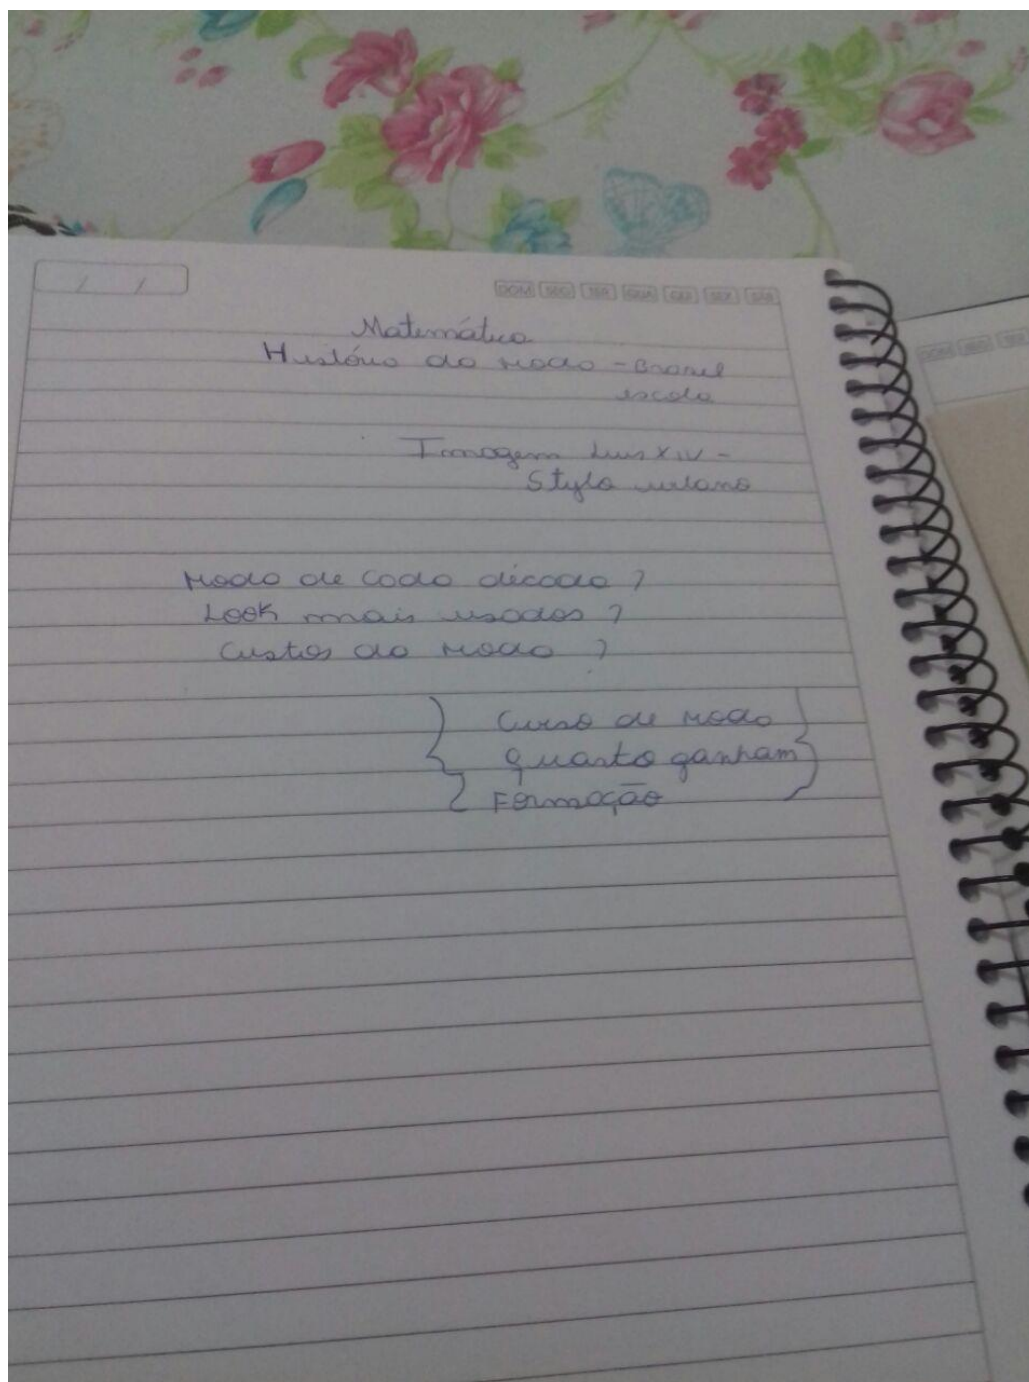 / /
DOM SEG TER QUA QUI SEX SÁB
DOM SEG TER
Matemática
História da Moda - Brasil
escola
Imagem Luis XIV -
Stylo urbano
Moda de Cada década ?
Look mais usados ?
Custos da Moda ?
Curso de Moda
Quanto ganham
Formação